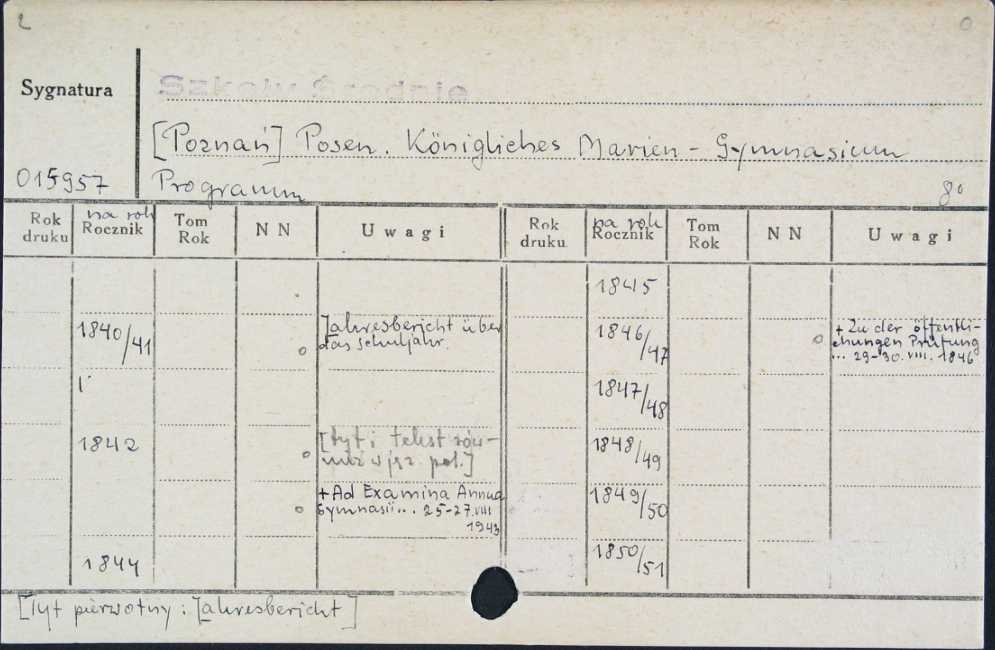 2
0
Sygnatura
Szkoły Średnie
[Poznań] Posen. Königliches Marien-Gymnasium
015957
Programm
8°
Rok druku
na rok
Rocznik
Tom Rok
NN
Uwagi
Rok druku
na rok
Rocznik
Tom Rok
NN
Uwagi
1845
1840/41
o
Jahresbericht über
das Schuljahr.
1846/47
o
+ Zu der öffentli-
chungen Prüfung
... 29-30.VIII.1846
1847/48
1842
o
[tyt i tekst rów-
nież w jęz. pol.]
1848/49
o
+Ad Examina Annua
Gymnasii... 25-27.VIII
1943
1849/50
1844
1850/51
[Tyt pierwotny: Jahresbericht]